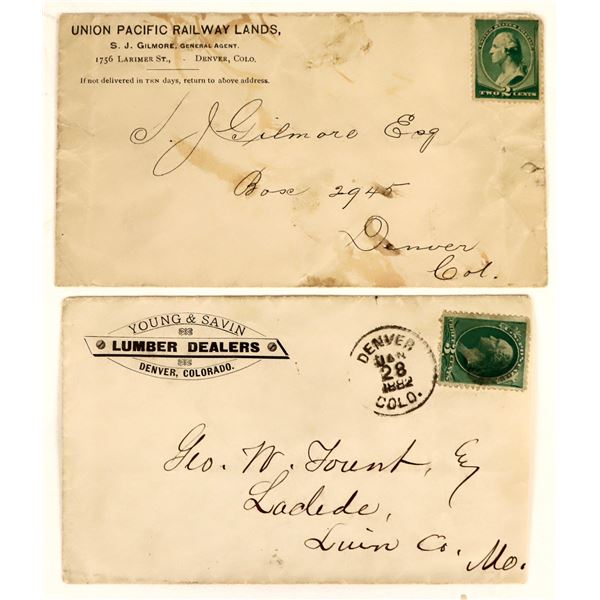 UNION PACIFIC RAILWAY LANDS,
S. J. GILMORE, GENERAL AGENT.
1756 LARIMER ST., - DENVER, COLO.
If not delivered in TEN days, return to above address.
TWO 2 CENTS
S. J Gilmore Esq
Box 2945
Denver
Col.
YOUNG & SAVIN
LUMBER DEALERS
DENVER, COLORADO.
DENVER
JAN
28
1882
COLO.
Geo. W. Fount, Esq
Laclede,
Linn Co. Mo.